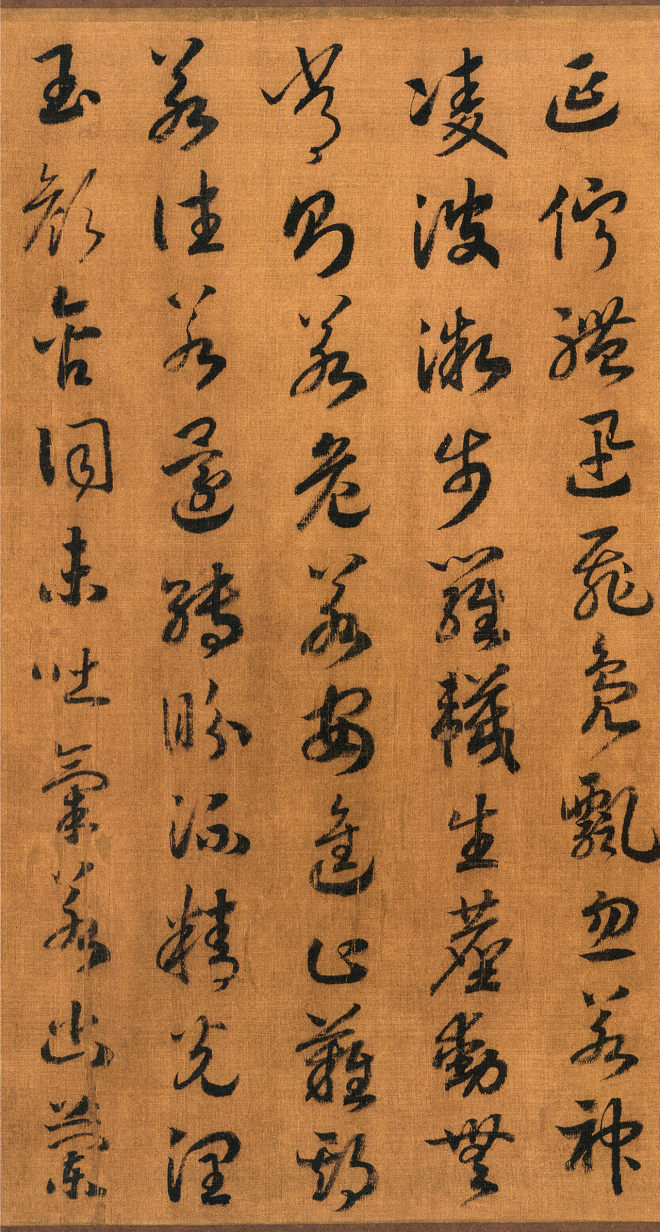 延佇體迅飛鳧飄忽若神
凌波微步羅韈生塵動無
常則若危若安進止難期
若往若還轉眄流精光潤
玉顏含詞未吐氣若幽蘭